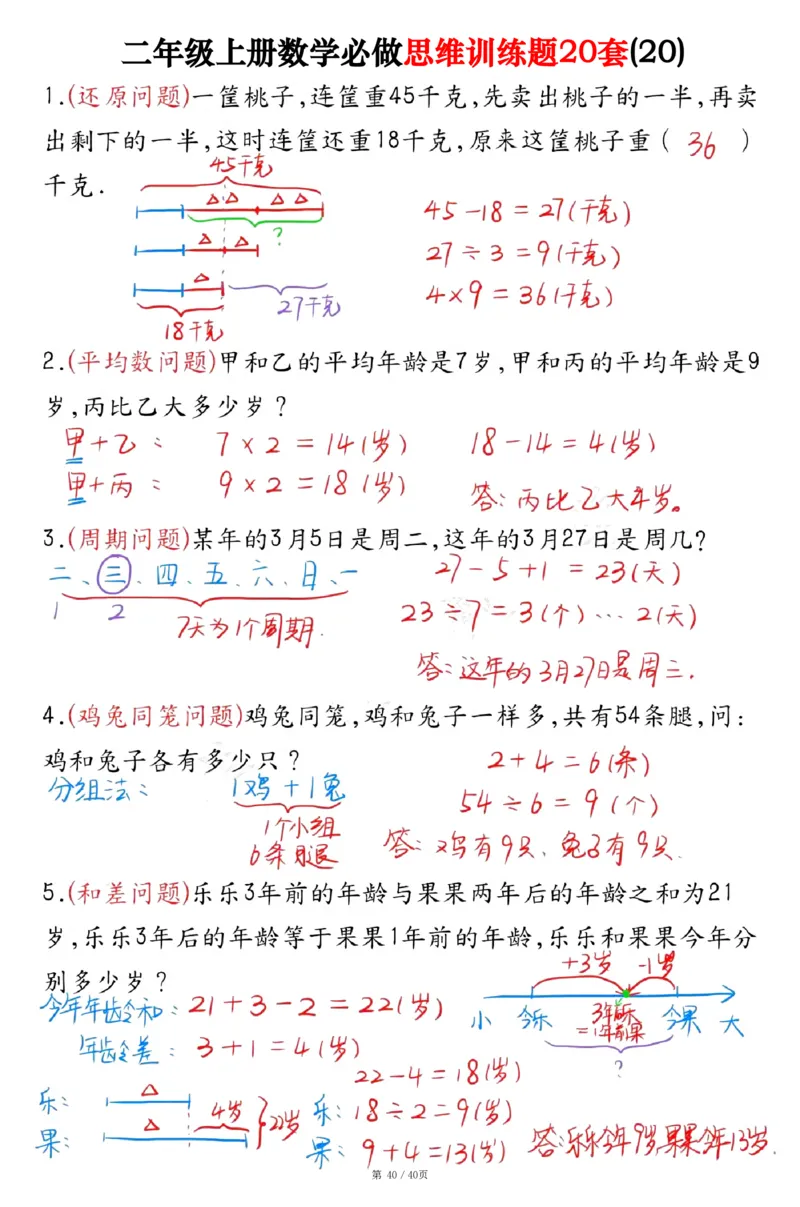 二年级上册数学必做思维训练题20套(20)
1.(还原问题)一筐桃子,连筐重45千克,先卖出桃子的一半,再卖
出剩下的一半,这时连筐还重18千克,原来这筐桃子重( 36 )
千克.
45千克
△ △ △ △
?
△ △
△
27千克
18千克
45-18=27(千克)
27÷3=9(千克)
4×9=36(千克)
2.(平均数问题)甲和乙的平均年龄是7岁,甲和丙的平均年龄是9
岁,丙比乙大多少岁?
甲+乙: 7×2=14(岁) 18-14=4(岁)
甲+丙: 9×2=18(岁) 答:丙比乙大4岁。
3.(周期问题)某年的3月5日是周二,这年的3月27日是周几?
二、三、四、五、六、日、一 27-5+1=23(天)
1 2 7天为1个周期. 23÷7=3(个)…2(天)
答:这年的3月27日是周三.
4.(鸡兔同笼问题)鸡兔同笼,鸡和兔子一样多,共有54条腿,问:
鸡和兔子各有多少只? 2+4=6(条)
分组法: 1鸡+1兔 54÷6=9(个)
1个小组
6条腿 答:鸡有9只、兔子有9只.
5.(和差问题)乐乐3年前的年龄与果果两年后的年龄之和为21
岁,乐乐3年后的年龄等于果果1年前的年龄,乐乐和果果今年分
别多少岁? +3岁 -1岁
今年年龄和:21+3-2=22(岁)
小 今乐 3年后乐 今果 大
=1年前果
?
年龄差: 3+1=4(岁)
22-4=18(岁)
乐: △ 乐:18÷2=9(岁)
果: △ 4岁 22岁 果: 9+4=13(岁) 答:乐乐今年9岁,果果今年13岁.
第 40 / 40页